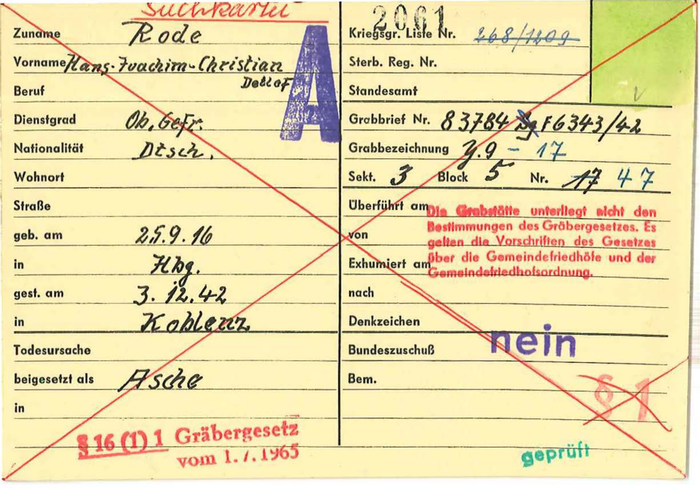 Suchkartei
2061
Zuname Rode
Vorname Hans-Joachim-Christian
Detlef
A
Beruf
Dienstgrad Ob. Gefr.
Nationalität Dtsch.
Wohnort
Straße
geb. am 25.9.16
in Hbg.
gest. am 3.12.42
in Koblenz
Todesursache
beigesetzt als Asche
in
§ 16 (1) 1 Gräbergesetz
vom 1.7.1965
Kriegsgr. Liste Nr. 268/1209
Sterb. Reg. Nr.
Standesamt
Grabbrief Nr. 83784 F6343/42
Grabbezeichnung Y.9 - 17
Sekt. 3 Block 5 Nr. 17 47
Überführt am
von
Exhumiert am
nach
Die Grabstätte unterliegt nicht den
Bestimmungen des Gräbergesetzes. Es
gelten die Vorschriften des Gesetzes
über die Gemeindefriedhöfe und der
Gemeindefriedhofsordnung.
Denkzeichen
Bundeszuschuß nein
Bem.
§ 1
geprüft